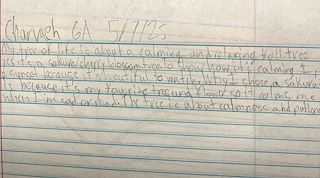 Charvaeh 6A 5/7/25
My tree of life is about a calming and relaxing tall tree
yes it's a sakura/cherry blossom tree to show how it's calming I
sunset because it's beautiful to watch. Why I chose a sakura
is because it's my favourite tree and flower so it calms me
when I'm sad or mad. The tree is about calmness and patience